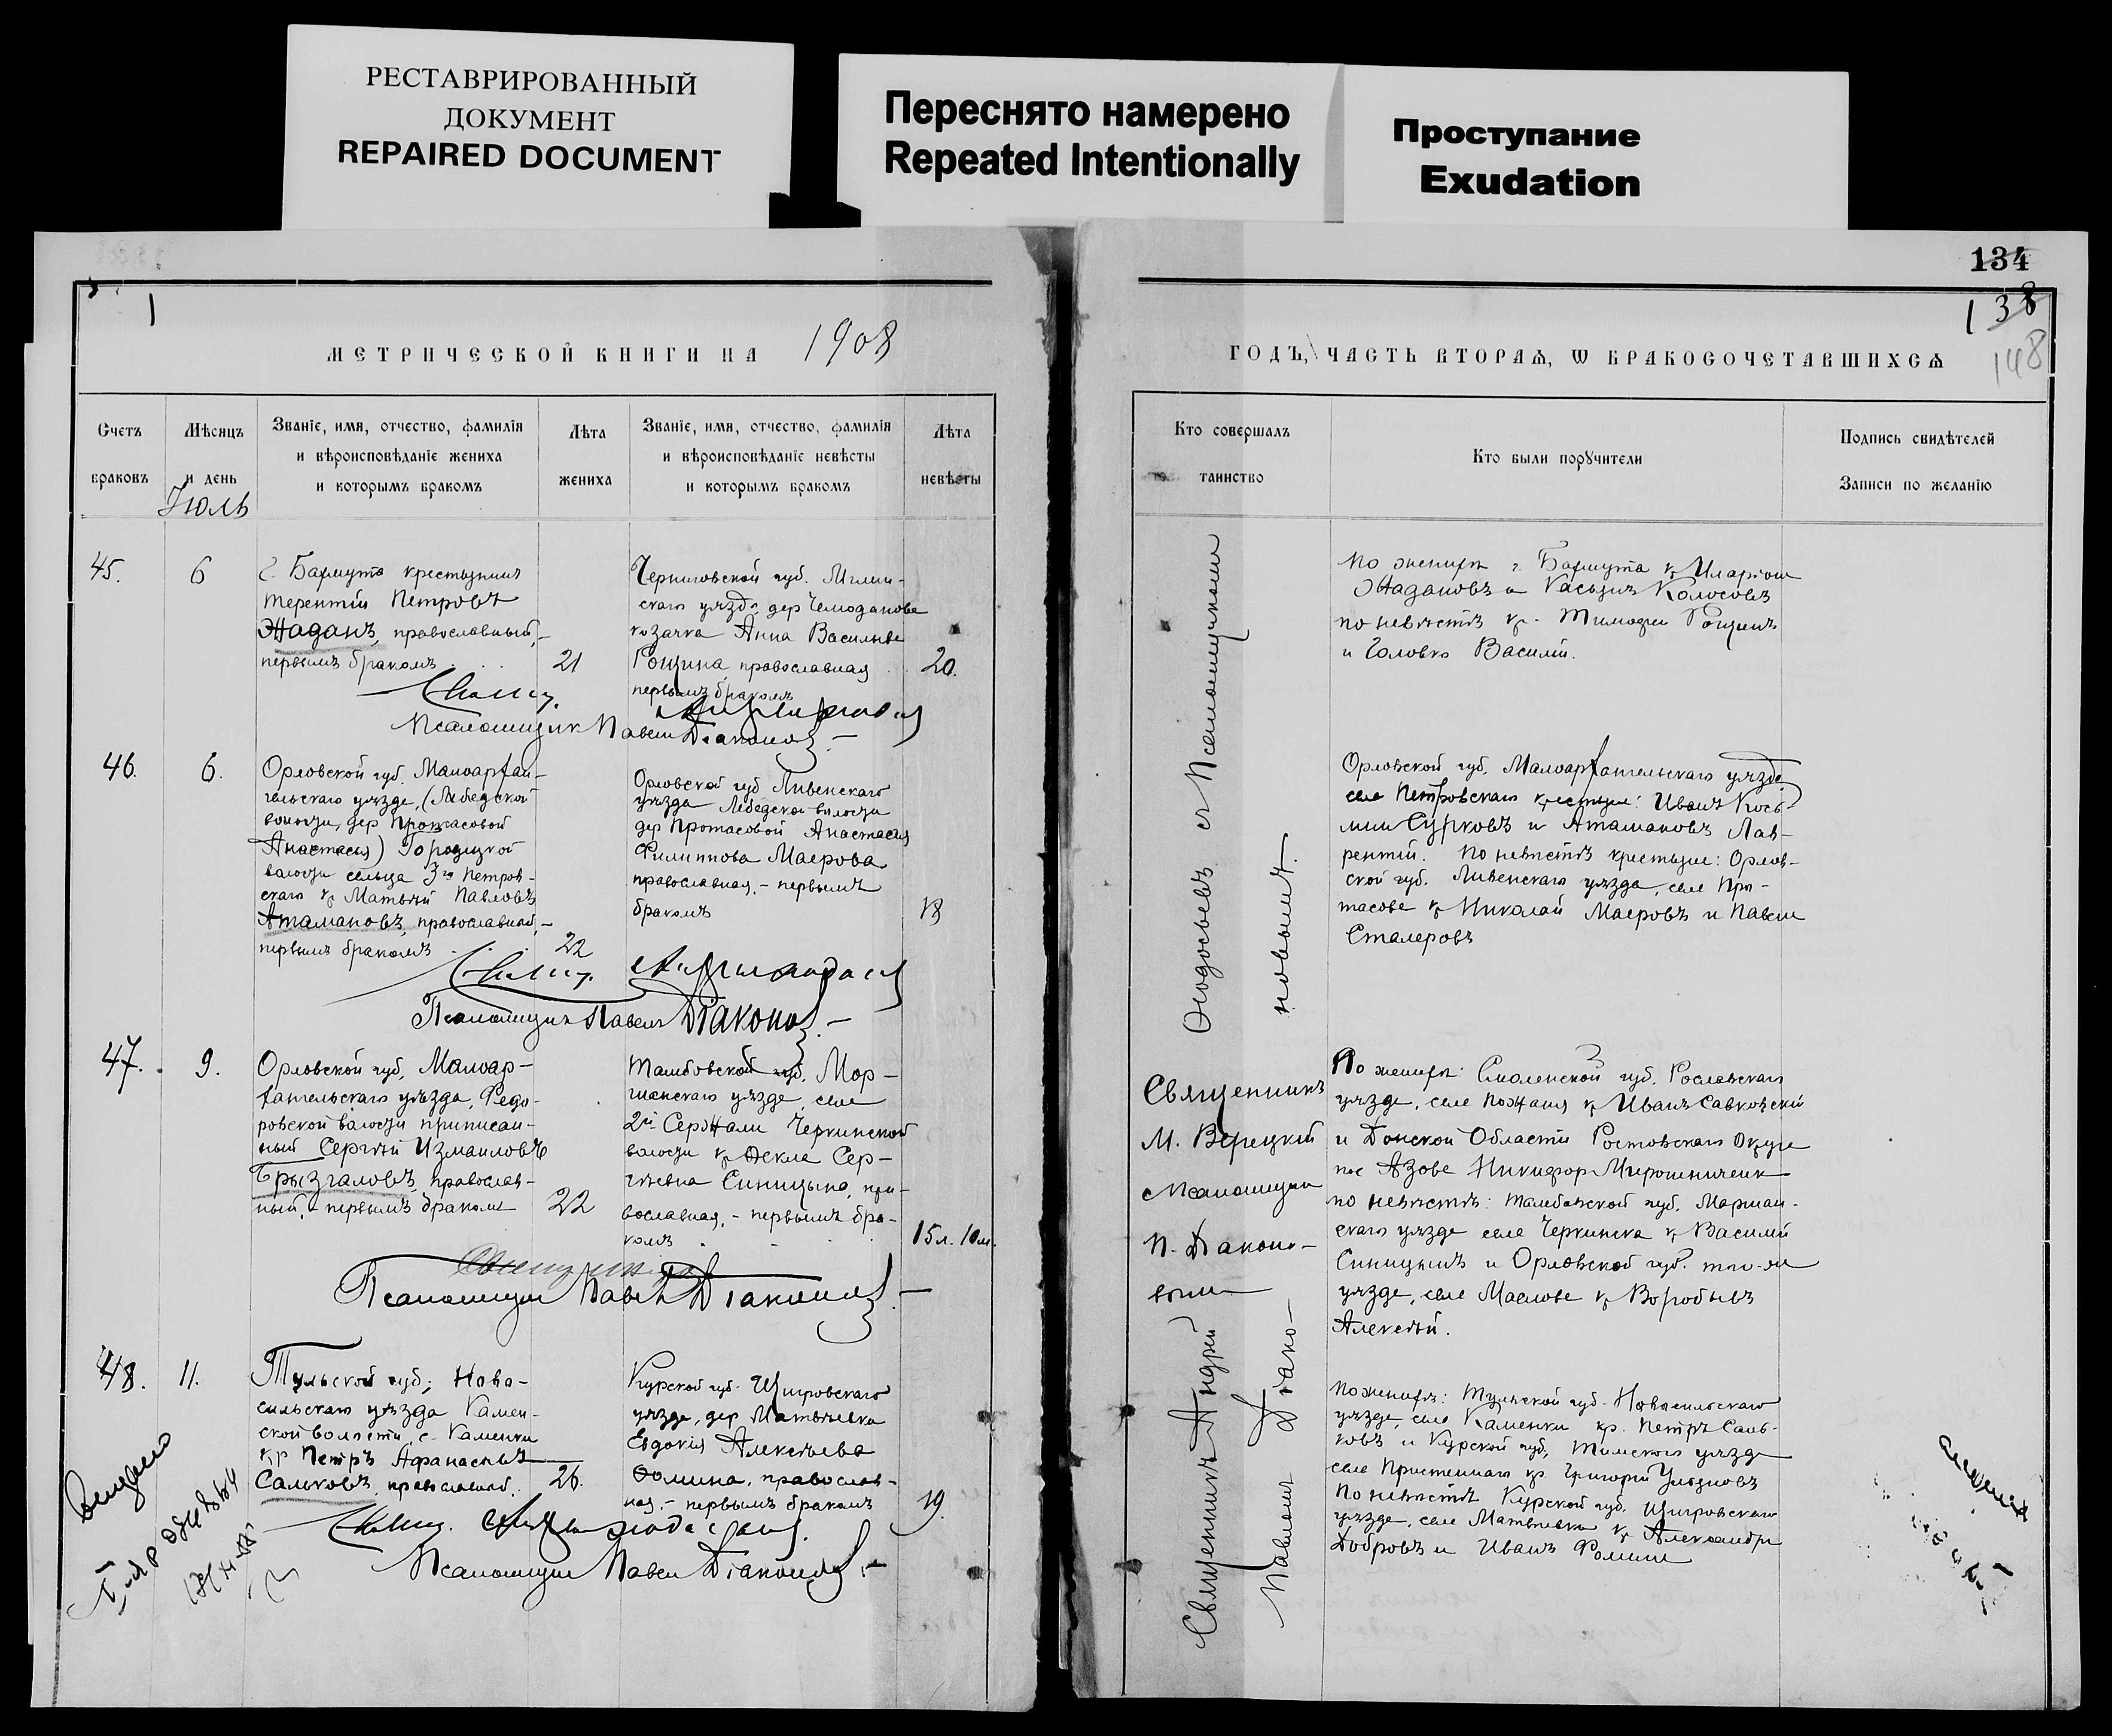 РЕСТАВРИРОВАННЫЙ
ДОКУМЕНТ
REPAIRED DOCUMENT
Переснято намерено
Repeated Intentionally
Проступание
Exudation
134
138
148
МЕТРИЧЕСКОЙ КНИГИ НА 1908
ГОДЪ, ЧАСТЬ ВТОРАЯ, Ѡ БРАКОСОЧЕТАВШИХСЯ
Счетъ
браковъ
Мѣсяцъ
и день
Званіе, имя, отчество, фамилія
и вѣроисповѣданіе жениха
и которымъ бракомъ
Лѣта
жениха
Званіе, имя, отчество, фамилія
и вѣроисповѣданіе невѣсты
и которымъ бракомъ
Лѣта
невѣсты
Кто совершалъ
таинство
Кто были поручители
Подпись свидѣтелей
Записи по желанію
Іюль
45.
6
г. Бахмута крестьянинъ
Терентій Петровъ
Жаданъ, православный,
первымъ бракомъ
21
Черниговской губ. Мглин-
скаго уѣзда, дер Чемоданова
козачка Анна Васильева
Рощина, православная
первымъ бракомъ
20.
Псаломщик Павелъ Діаконовъ.
По женихѣ г. Бахмута кр Иларіон
Жадановъ и Касьянъ Колосовъ
по невѣстѣ кр. Тимофей Рощинъ
и Головко Василій.
Псаломщикомъ
Діаконовымъ.
46.
6.
Орловской губ. Малоархан-
гельскаго уѣзда, (Лебедской
волости, дер Протасовой
Анастасія) Городецкой
волости сельца 3го Петров-
скаго кр Матвѣй Павловъ
Атамановъ, православный,
первымъ бракомъ
22
Орловской губ Ливенскаго
уѣзда Лебедской волости
дер Протасовой Анастасія
Филиппова Маерова
православная, - первымъ
бракомъ
18
Псаломщикъ Павелъ Діаконовъ.
Орловской губ. Малоархангельскаго уѣзда
села Петровскаго крестьяне: Иванъ Кось-
мин Сурковъ и Атамановъ Лав-
рентій. По невѣстѣ крестьяне: Орлов-
ской губ. Ливенскаго уѣзда, села Про-
тасова кр Николай Маеровъ и Павел
Сталеровъ
47.
9.
Орловской губ, Малоар-
хангельскаго уѣзда, Федо-
ровской волости приписан-
ный Сергѣй Измаиловъ
Брызгаловъ, православ-
ный, - первымъ бракомъ
22
Тамбовской губ. Мор-
шанскаго уѣзда, села
2й Сержали Черкинской
волости кр Ѳекла Сер-
гѣевна Синицына, пра-
вославная, - первымъ бра-
комъ
15л. 10м.
Псаломщик Павелъ Діаконовъ.
Священникъ
М. Верецкій
с псаломщик
П. Діаконо-
вым
По женихѣ: Смоленской губ. Рославскаго
уѣзда, села кр Иванъ Савковскій
и Донской Области Ростовскаго Округа
пос Азова Никифор Мирошниченк
по невѣстѣ: Тамбовской губ. Моршан-
скаго уѣзда села Черкинска кр Василій
Синицынъ и Орловской губ. того-же
уѣзда, села Маслова кр Воробьевъ
Алексѣй.
48.
11.
Тульской губ; Ново-
сильскаго уѣзда Камен-
ской волости, с. Каменки
кр Петръ Афанасьевъ
Сальковъ, православ.
26.
Курской губ. Щигровскаго
уѣзда, дер Матвѣевка
Евдокія Алексѣева
Ѳомина, православ-
ная, - первымъ бракомъ
19.
Псаломщик Павел Діаконовъ.
Священникъ Андрей
Павломъ Діако-
По женихѣ: Тульской губ. Новосильскаго
уѣзда, села Каменки кр. Петръ Саль-
ковъ и Курской губ, Тимскаго уѣзда
села Пристеннаго кр Григорій
По невѣстѣ Курской губ. Щигровскаго
уѣзда, села Матвѣевки кр Александр
Добровъ и Иванъ Фомин